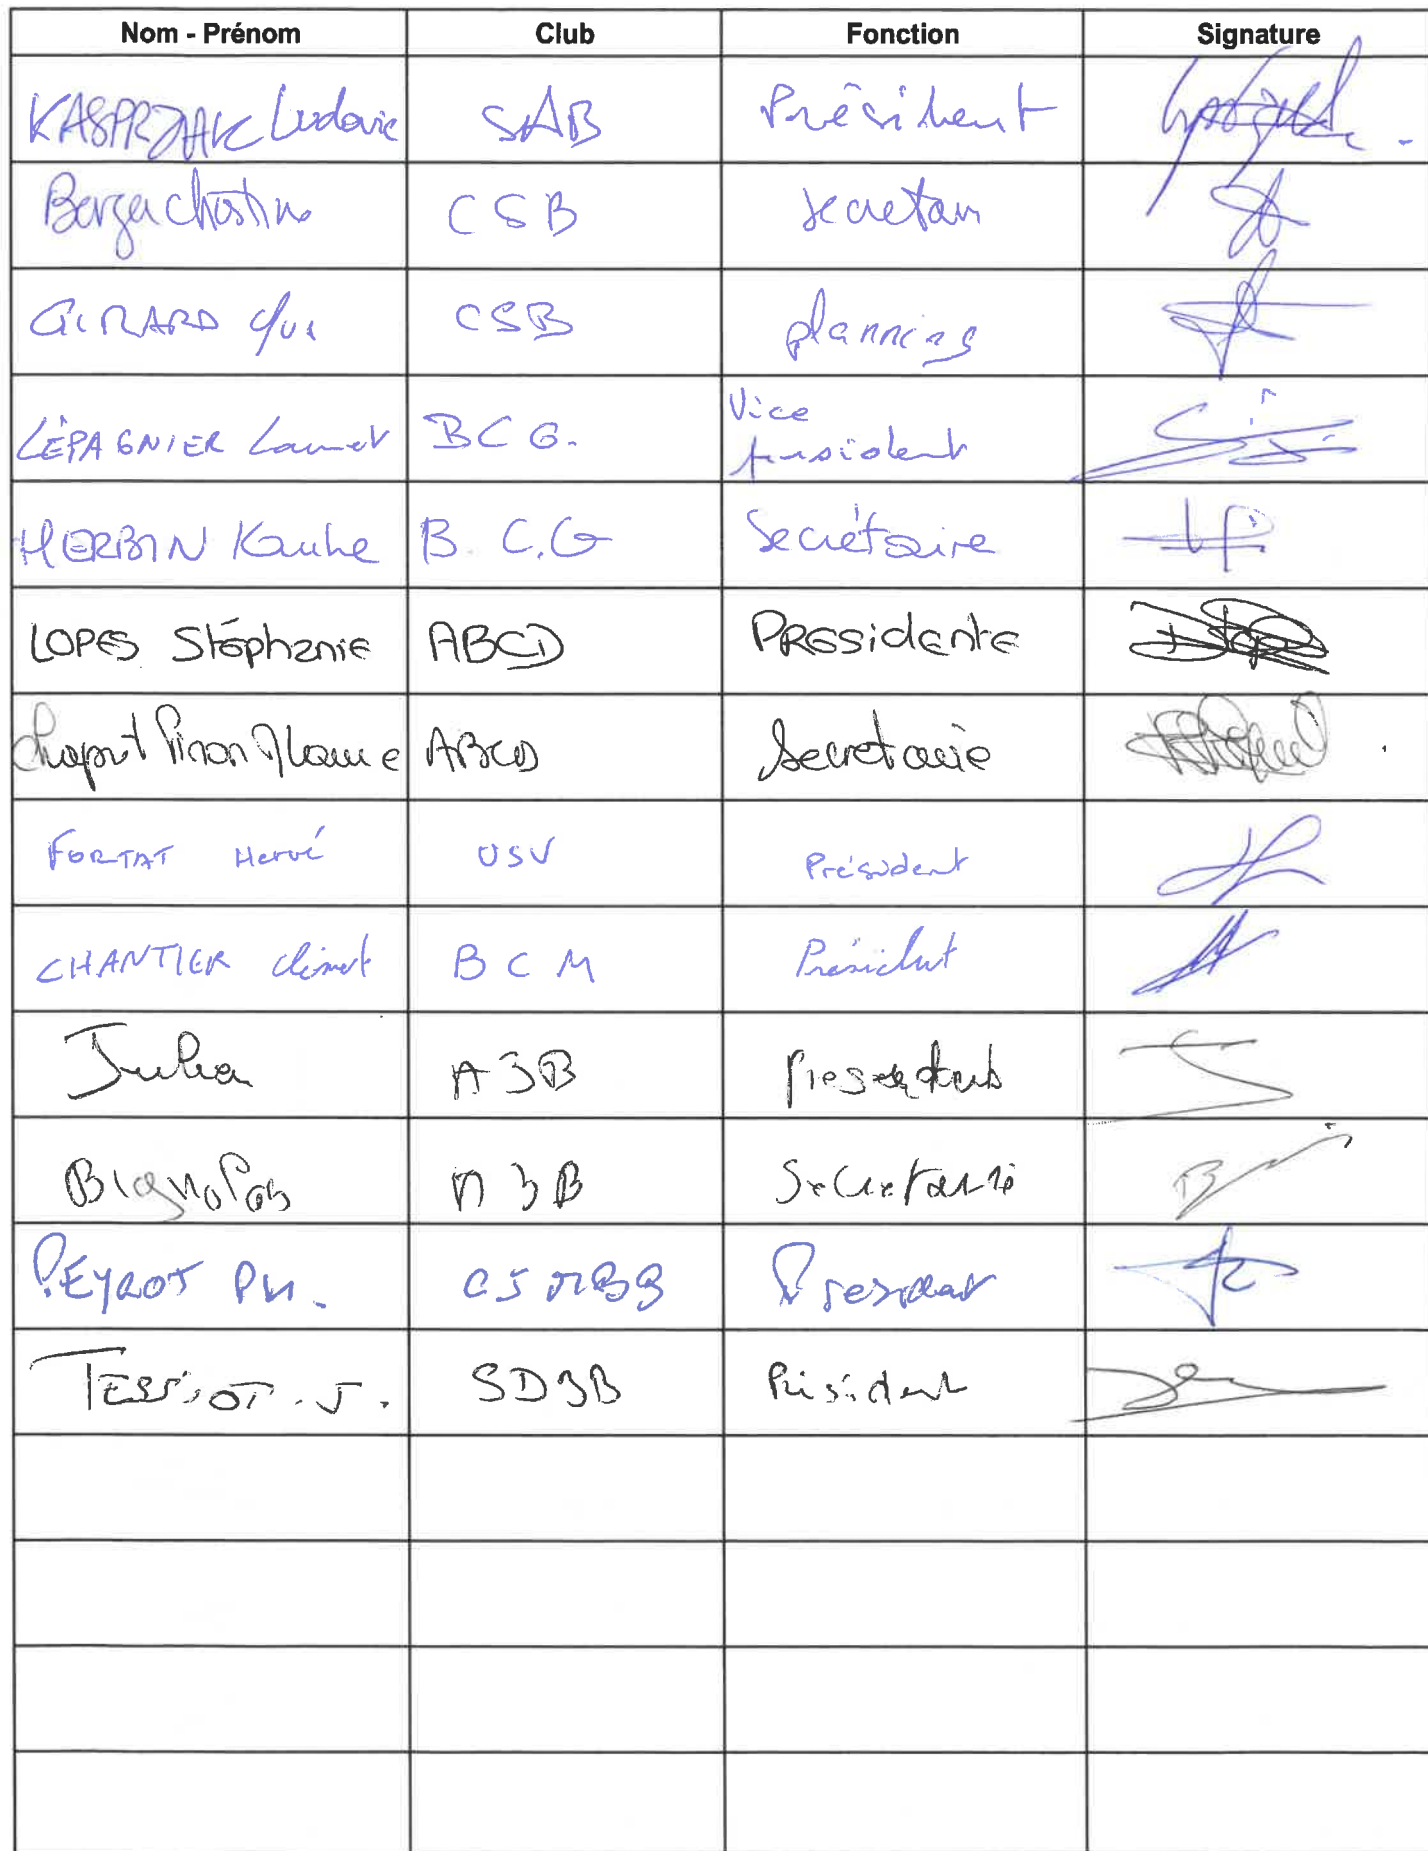 Nom - Prénom Club Fonction Signature
KASPRZAK Ludovic SAB Président
Berger Christine CSB secretair
GIRARD CSB planning
LÉPAGNIER Laurent BCG. Vice
president
HERBIN B.C.G Secrétaire
LOPES Stéphanie ABCD PRésidente
Chaput Pinon ABCD Secretaire
FORTAT Hervé USV Président
CHANTIER Clément BCM Président
Julien A3B
A3B Secretaire
PEYROT PH. CSMBB President
TESSIOT. J. SD3B Président